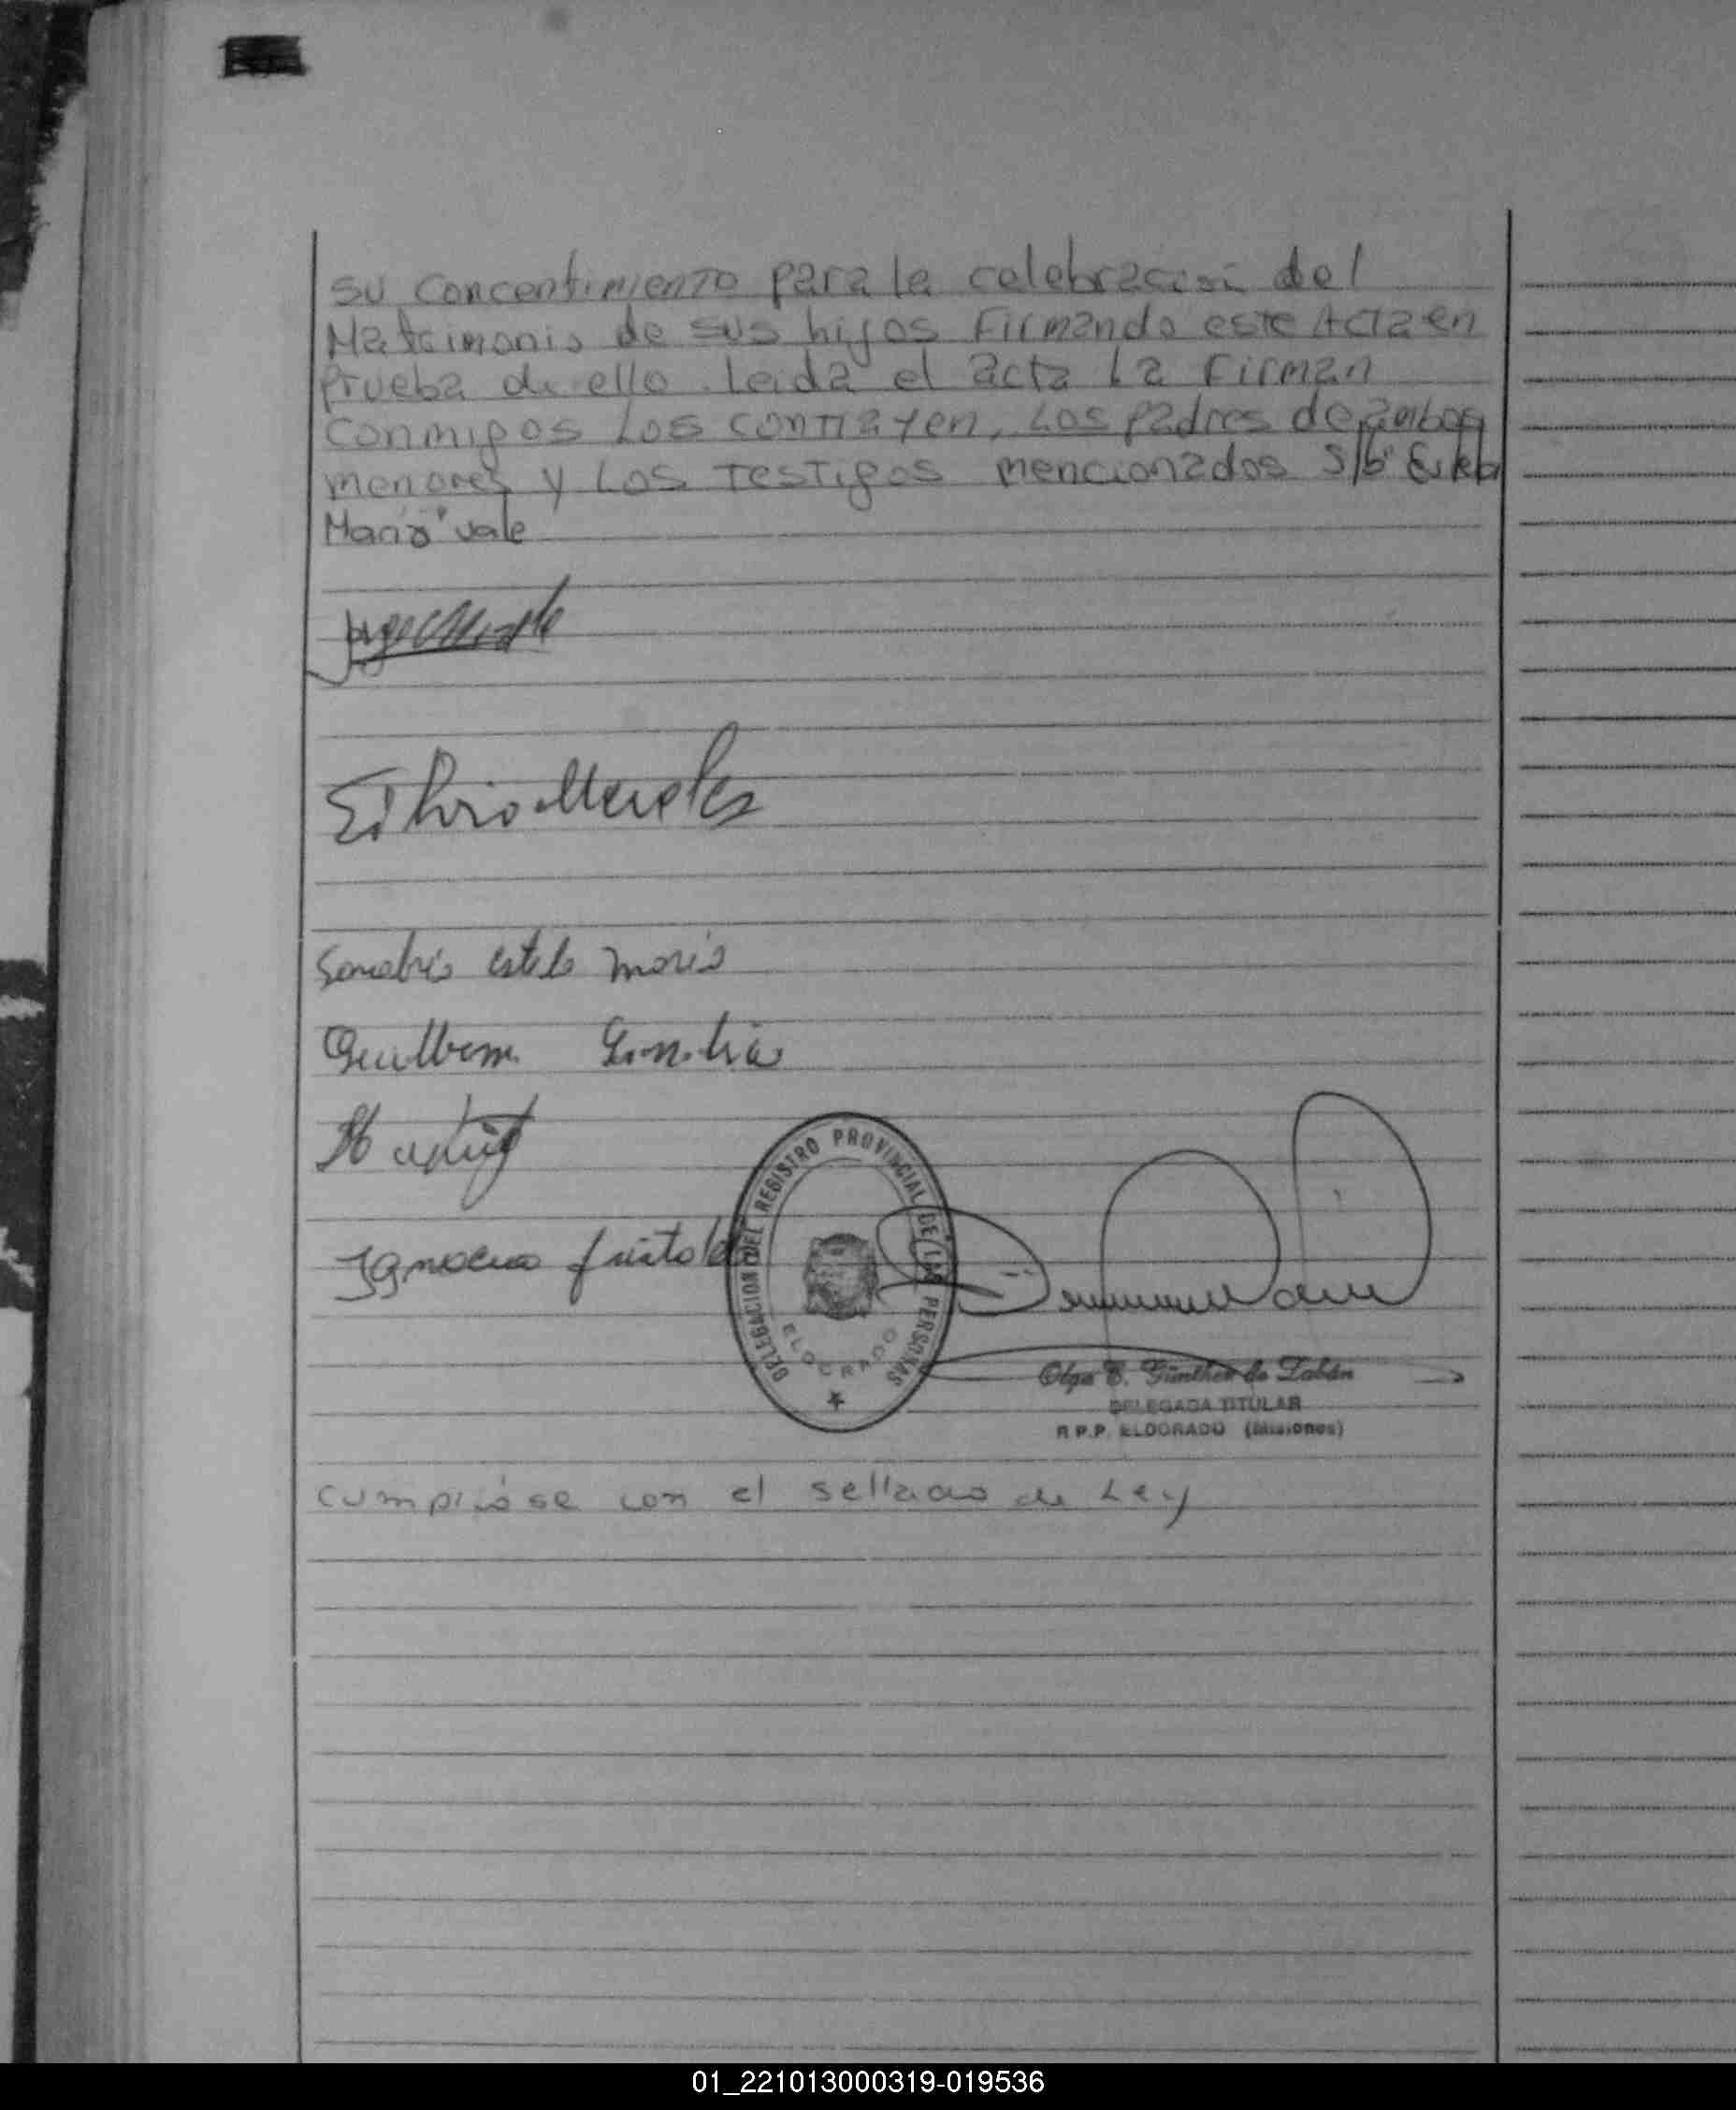 su concentimiento para la celebracion del
Matrimonio de sus hijos Firmando este Acta en
prueba de ello. Leida el acta La Firman
conmigos Los contrayen, Los padres de ambos
menores y Los Testigos mencionados S/b" Estela
Maria" vale
Silvio Morales
Sanabria estela maria
DELEGACION DEL REGISTRO PROVINCIAL DE LAS PERSONAS
ELDORADO
Olga E. Günther de Zabán
DELEGADA TITULAR
R.P.P. ELDORADO (Misiones)
cumpliose con el sellado de Ley
01_221013000319-019536